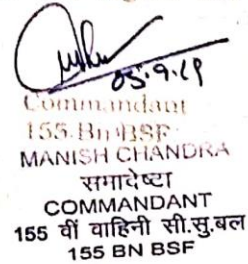 05.9.19
Commandant
155 Bn BSF
MANISH CHANDRA
समादेष्टा
COMMANDANT
155 वीं वाहिनी सी.सु.बल
155 BN BSF